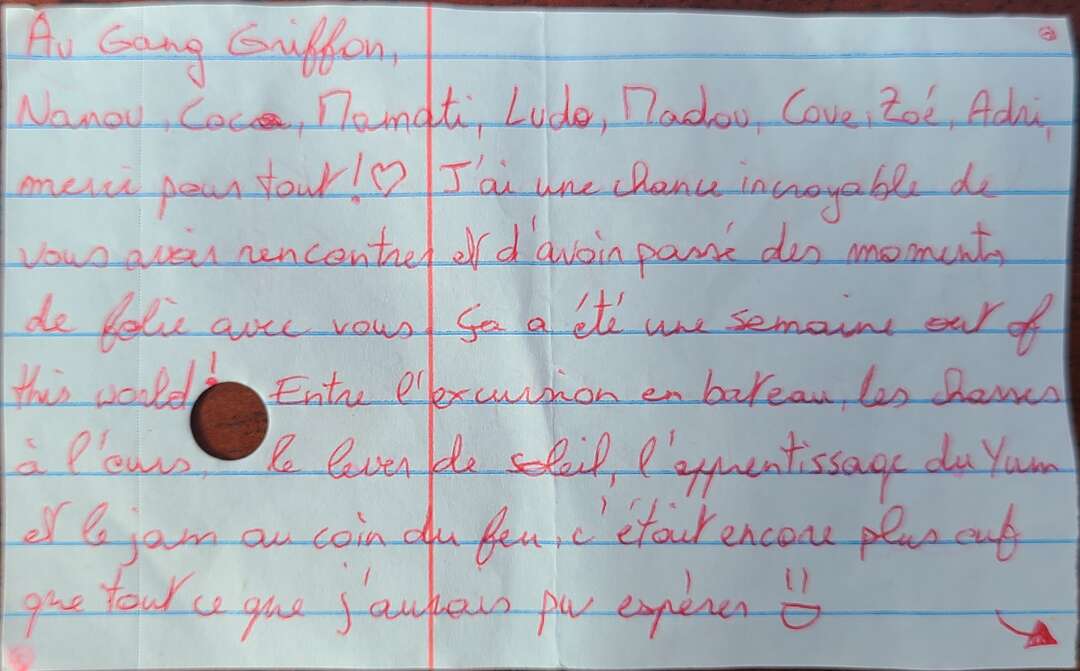 Au Gang Griffon,
Nanou, Coco, Mamati, Ludo, Madou, Cove, Zoé, Adri,
merci pour tout ! ♡ J'ai une chance incroyable de
vous avoir rencontrer et d'avoir passé des moments
de folie avec vous. Ça a été une semaine out of
this world ! Entre l'excursion en bateau, les chasses
à l'ours, le lever de soleil, l'apprentissage du Yum
et le jam au coin du feu, c'était encore plus ouf
que tout ce que j'aurais pu espérer